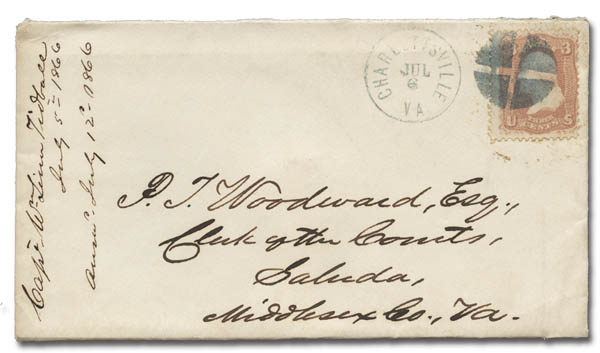 Capt. Wm Linn Tidball
July 5th 1866
Answd. July 12th 1866
CHARLOTTSVILLE
JUL
6
VA
3
U S
THREE
CENTS
P. T. Woodward, Esq.,
Clerk of the Courts,
Saluda,
Middlesex Co., Va.